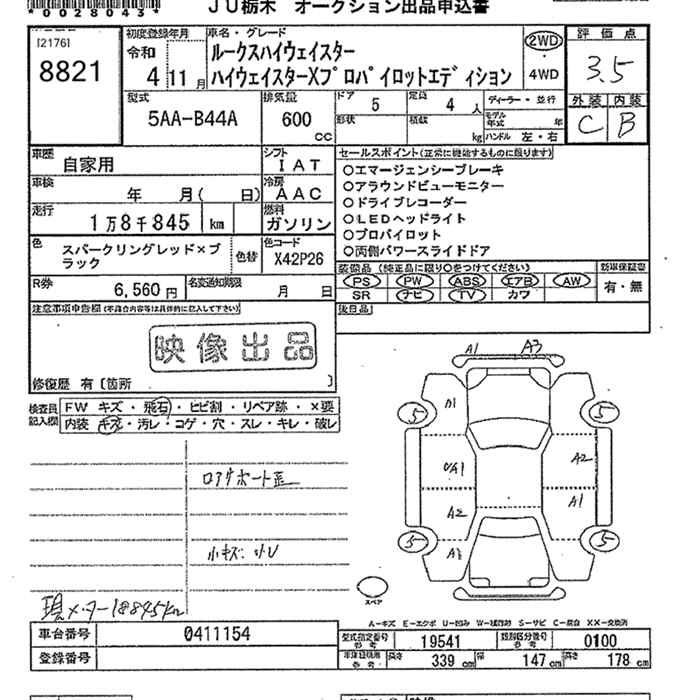 *0028043*
JU栃木 オークション出品申込書
[2176]
8821
初度登録年月
令和
4年11月
車名・グレード
ルークスハイウェイスター
ハイウェイスターXプロパイロットエディション
2WD
・
4WD
評価点
3.5
型式
5AA-B44A
排気量
600
cc
ドア
5
定員
4人
ディーラー・並行
形状
積載
kg
モデル年式 年
ハンドル 左・右
外装 内装
C B
車歴
自家用
シフト
IAT
車検
年 月( 日)
冷房
AAC
走行
1万8千845km
燃料
ガソリン
セールスポイント(正常に機能するものに限ります)
○エマージェンシーブレーキ
○アラウンドビューモニター
○ドライブレコーダー
○LEDヘッドライト
○プロパイロット
○両側パワースライドドア
色
スパークリングレッド×ブラック
色替
色コード
X42P26
装備品(純正品に限り○をつけてください)
PS PW ABS エアB AW
SR ナビ TV カワ
新車保証書
有・無
R券
6,560円
名変通知期限
月 日
注意事項申告欄(不具合内容等は具体的に記入して下さい)
後日品
映像出品
修復歴 有〔箇所 〕
検査員記入欄
FW キズ・飛石・ヒビ割・リペア跡・×要
内装 キズ・汚レ・コゲ・穴・スレ・キレ・破レ
A1 A3
A1
5 5
UA1 A2
A2 A1
5 5
A1
小キズ・凹
現メーター18845km
スペア
A-キズ E-エクボ U-凹み W-補修跡 S-サビ C-腐食 XX-交換済
車台番号
0411154
登録番号
型式指定番号 参考
19541
類別区分番号 参考
0100
長さ
339cm
幅
147cm
高さ
178cm